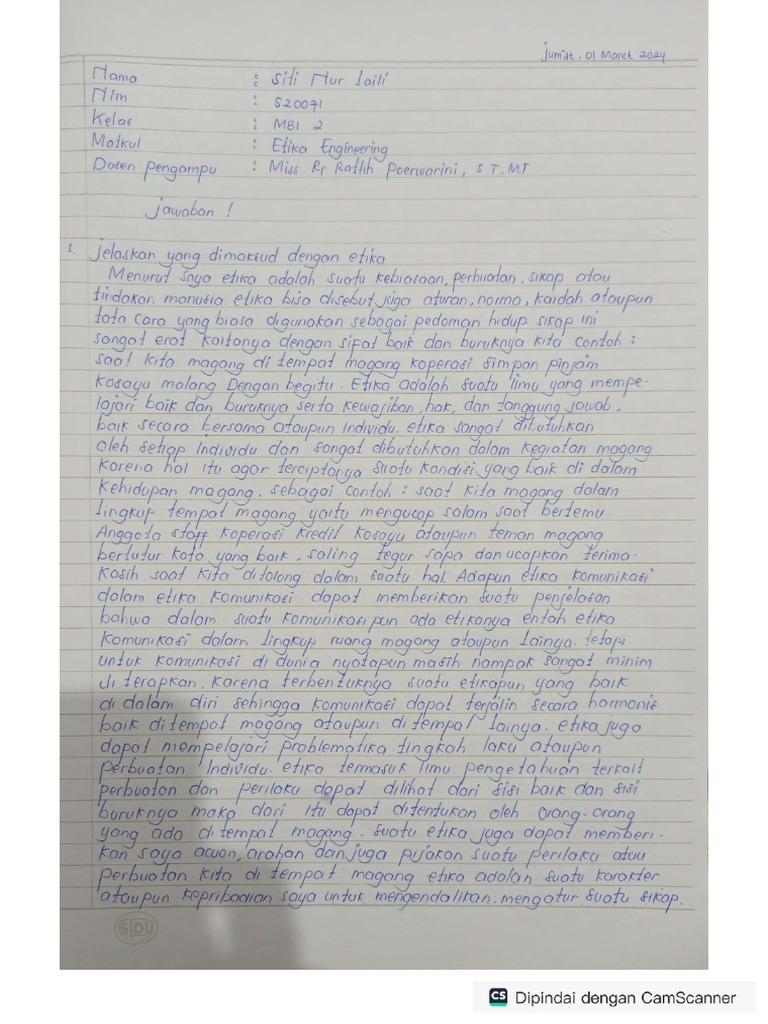 Jum'at, 01 Maret 2024
Nama : Siti Nur laili
Nim : S20071
Kelas : MBI 2
Matkul : Etika Engineering
Dosen Pengampu : Miss. Rr Ratih Poerwarini, S.T.M.T
Jawaban !
1. Jelaskan yang dimaksud dengan etika
Menurut saya etika adalah suatu kebiasaan, perbuatan, sikap atau
tindakan manusia. etika bisa disebut juga aturan, norma, kaidah ataupun
tata cara yang biasa digunakan sebagai pedoman hidup sikap ini
sangat erat kaitanya dengan sifat baik dan buruknya kita contoh :
saat kita magang di tempat magang koperasi simpan pinjam
kosayu malang Dengan begitu. Etika adalah suatu ilmu yang mempe-
lajari baik dan buruknya serta kewajiban, hak, dan tanggung jawab.
baik secara bersama ataupun individu. etika sangat dibutuhkan
oleh setiap individu dan sangat dibutuhkan dalam kegiatan magang
karena hal itu agar terciptanya suatu kondisi yang baik di dalam
kehidupan magang. sebagai contoh : saat kita magang dalam
lingkup tempat magang yaitu mengucap salam saat bertemu
Anggota staff koperasi kredit kosayu ataupun teman magang
bertutur kata yang baik, saling tegur sapa dan ucapkan terima-
kasih saat kita ditolong dalam suatu hal. Adapun etika komunikasi
dalam etika komunikasi dapat memberikan suatu penjelasan
bahwa dalam suatu komunikasipun ada etikanya entah etika
komunikasi dalam lingkup ruang magang ataupun lainya. tetapi
untuk komunikasi di dunia nyatapun masih nampak sangat minim
di terapkan. karena terbentuknya suatu etikapun yang baik
di dalam diri sehingga komunikasi dapat terjalin secara harmonis
baik ditempat magang ataupun di tempat lainya. etika juga
dapat mempelajari problematika tingkah laku ataupun
perbuatan Individu. etika termasuk ilmu pengetahuan terkait
perbuatan dan perilaku dapat dilihat dari sisi baik dan sisi
buruknya maka dari itu dapat ditentukan oleh orang-orang
yang ada di tempat magang. suatu etika juga dapat memberi-
kan saya acuan, arahan dan juga pijakan suatu perilaku atau
perbuatan kita di tempat magang etika adalah suatu karakter
ataupun kepribadian saya untuk mengendalikan. mengatur suatu sikap.
SiDU
CS Dipindai dengan CamScanner